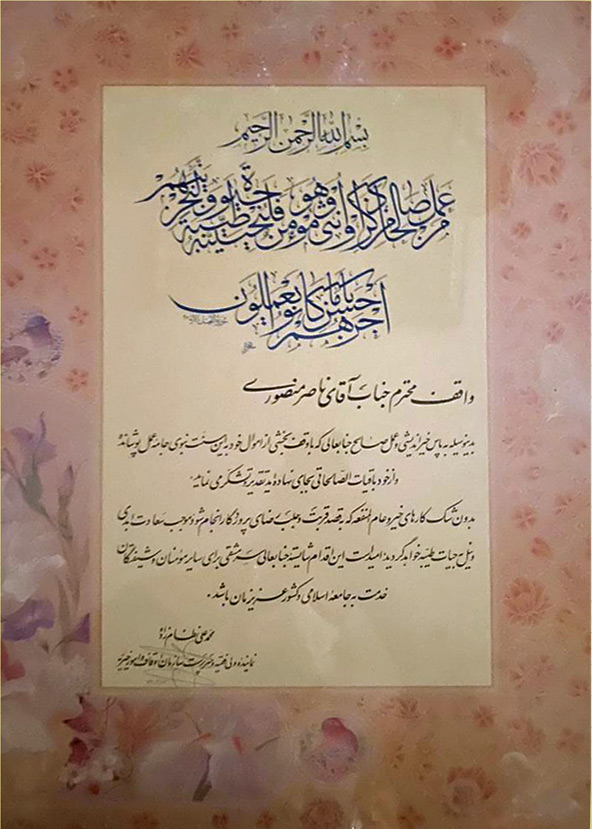 بسم الله الرحمن الرحیم
من عمل صالحا من ذکر او انثی و هو مؤمن فلنحیینه حیوة طیبة و لنجزینهم
اجرهم باحسن ما کانوا یعملون
واقف محترم جناب آقای ناصر منصوری
بدینوسیله به پاس خیراندیشی و عمل صالح جنابعالی که با وقف بخشی از اموال خود به این سنت نبوی جامه عمل پوشانده
و از خود باقیات الصالحاتی بجای نهاده‌اید تقدیر و تشکر می نماید.
بدون شک کارهای خیر و عام المنفعه که به قصد قربت و جلب رضای پروردگار انجام شود موجب سعادت ابدی
و نیل به حیات طیبه خواهد گردید. امید است این اقدام شایسته جنابعالی سرمشقی برای سایر مؤمنان و شیفتگان
خدمت به جامعه اسلامی و کشور عزیزمان باشد.
محمد علی نظام زاده
نماینده ولی فقیه و سرپرست سازمان اوقاف و امور خیریه